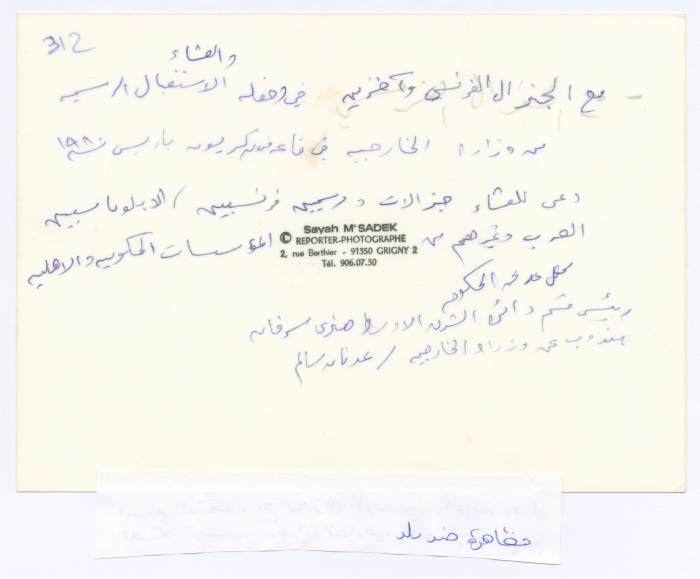 312
والعشاء
مع الجنرال الفرنسي وآخرين في حفلة الاستقبال الرسمية
من وزارة الخارجية في قاعة فندق كريون باريس سنة ١٩٨٠
دعى للعشاء جنرالات ورسميين فرنسيين / الدبلوماسيين
العرب وغيرهم من المؤسسات الحكومية والاهلية
Sayah M'SADEK
© REPORTER-PHOTOGRAPHE
2, rue Berthier - 91350 GRIGNY 2
Tél. 906.07.30
ممثل عن الحكومة
رئيس قسم دائرة الشرق الاوسط
مندوب عن وزارة الخارجية / عدنان سالم
مظاهرة ضد